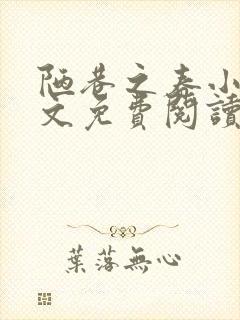 陋巷之春小
文免費閱讀
葉落無心